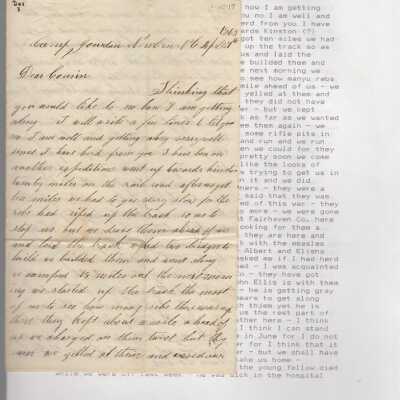 Camp Jourdan Newbern N C
Dear Cousin
Thinking that
you would like to no how I am getting
along I will write a few lines & let you
no I am well and getting along very well
since I have herd from you I have ben on
another expedition went up towards Kinston
twenty miles on the cars and after we got
ten miles we had to go very slow for the
rebs had riped up the track so as to
stop us but we drove them ahead of us
and laid the track whilst the
incamped 15 miles and the next morn
ing we started up the track the most
of us to see how many rebs there was up
there they kept about a mile ahead of
us we charged on them twice but they
run we yelled at them and
how I am getting
you no I am well and
herd from you I have
wards Kinston (?)
got ten miles we had
up the track so as
us and laid the
e builded them and
e next morning we
o see how manyu rebs
mile ahead of us - we
yelled at them and
they did not have
r - but we kept
k as far as we wanted
em them again - we
some rifle pits in
and run and we run
en we could for they
pretty soon we come
like the looks of
e trying to get us in
n it and we did.
ners - they were a
said that they was
ed of this war - they
o more - we were gone
t Fairhaven Co. here
ooking for them a
they are here and
h with the measles
Albert and Elisha
asked me if I had herd
ad - I was acquainted
o - they have got
ohn Ellis is with them
- he is getting gray
eare to get along
ch thiem yet he is
us the rest part of
ther here - I think
I think I can stand
e in June for I do not
er for I think that it
r - but we dhall have
ake us home -
the young fellow died
while we were off last week - he was sick in the hospital